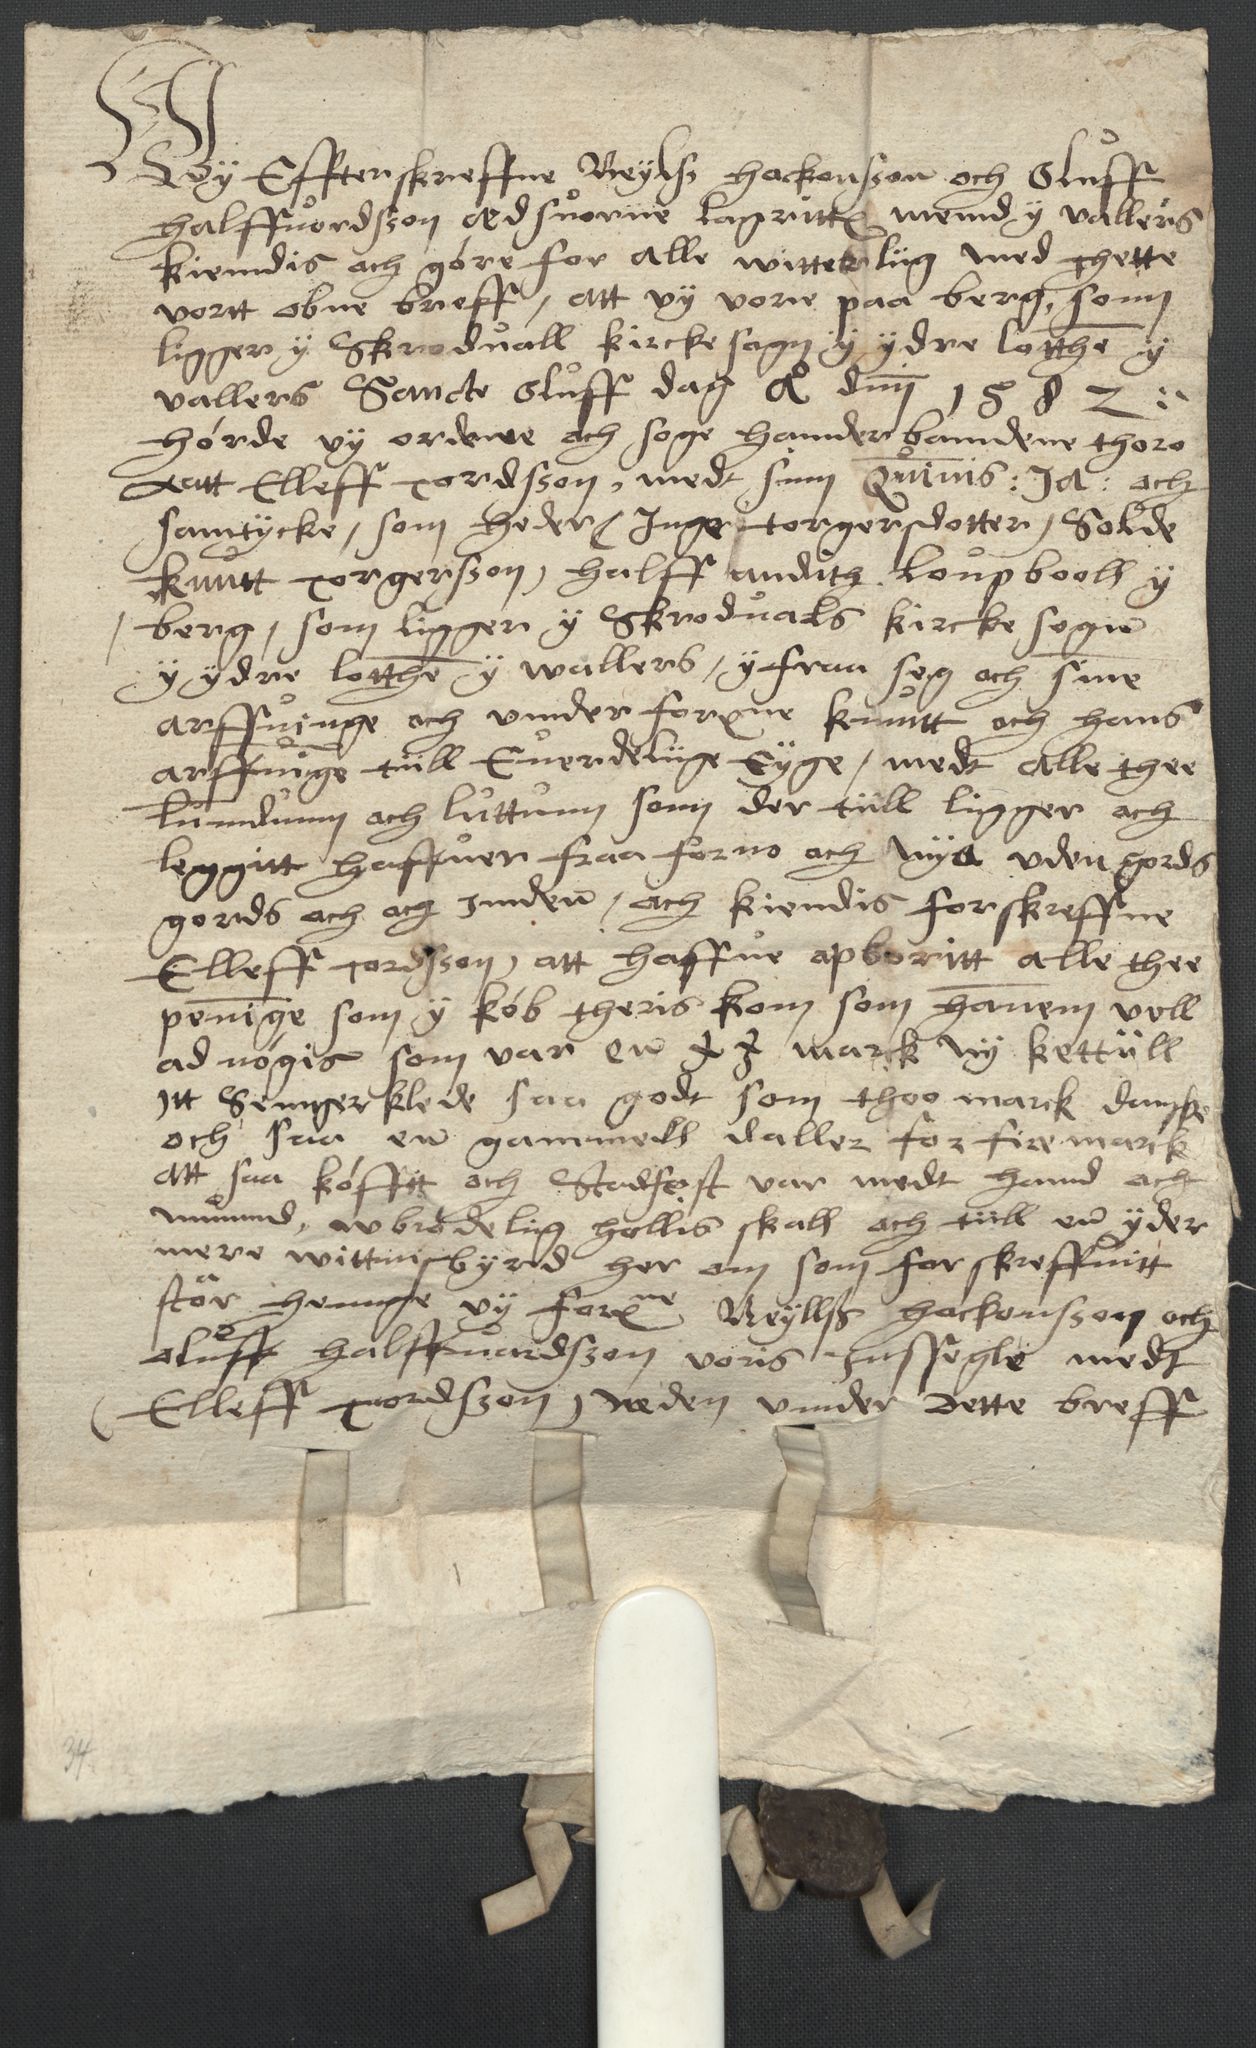 Wy Effterskreffne Neylss hackonsson och Oluff
halffuordsson ædsuorne lagrittis mend y vallers
kiendis och góre for alle witterlüg med thette
vortt obne breff, att vÿ vore paa berg, som
ligger y Skroduall kircke sogn ÿ ydre lotthe y
vallers Sancte Oluff dag Ao dnij 1582 :
hórde vÿ ordene och soge hannderbanndene thoro
att Elleff tordsson, medt sinn Quinis : Ja : och
samtÿcke, som heder Inger torgersdotter, Solde
knutt torgersson, halff andith loupbooll y
berg, som ligger y Skroduals kircke sogne
y ydre lotthe y wallers, yfraa seg och sine
arffuinge och vnder forne knutt och hans
arffuinge tüll Euerdelige Eÿge, medt alle thee
lundum och luttum som der tüll ligger och
leggitt haffuer fraa forno och nÿa vden gords
gords och och inden, och kiendis forskreffne
Elleff tordsson, att haffue opboritt alle thee
peninge som y kób theris kom som hanem vell
ad nógis som var en xx marck nÿ kettüll
Itt Sengerklede saa godt som thoo marck danske
och saa en gammell daller for fire marck
att saa kófftt och Stadfest var medt hannd och
munnd, wbrodelig hollis skall och tüll en ÿder
mere wittnisbÿrd her om som forskreffuitt
stór henge vÿ forne Neyllss hackonsson och
oluff halffuardsson voris Indsegle medt
Elleff tordsson, neden vnder dette breff
34